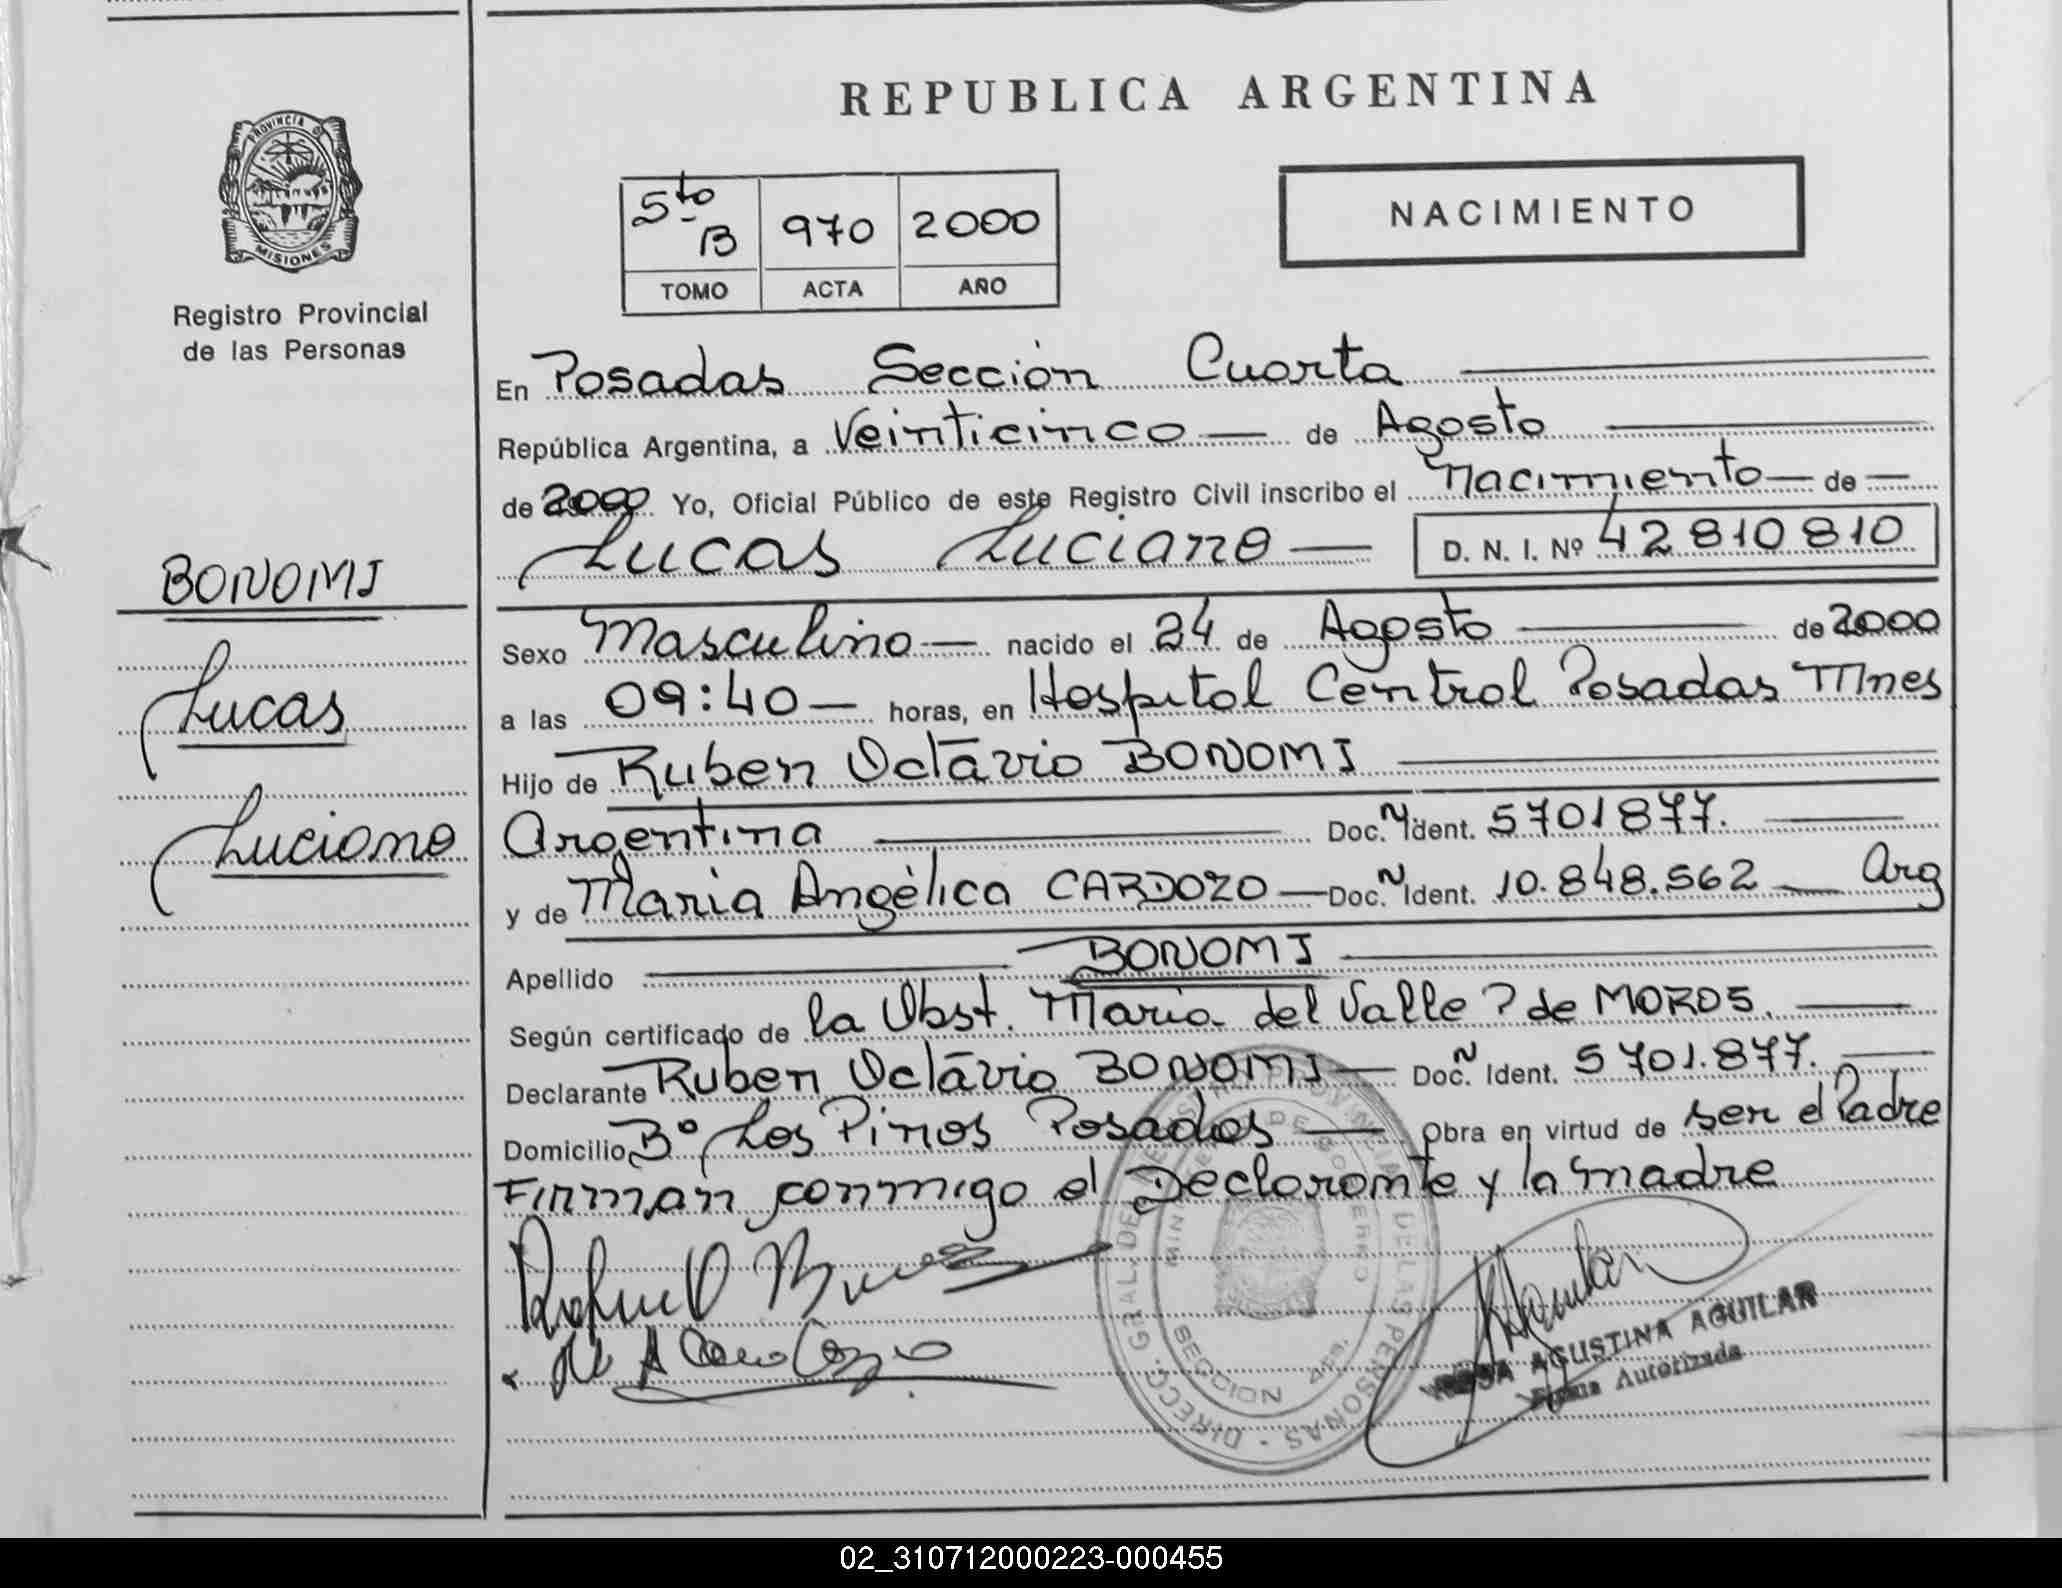 REPUBLICA ARGENTINA
PROVINCIA D
MISIONES
Registro Provincial
de las Personas
5to B 970 2000
TOMO ACTA AÑO
NACIMIENTO
BONOMI
Lucas
Luciano
En Posadas Sección Cuarta
República Argentina, a Veinticinco — de Agosto
de 2000 Yo, Oficial Público de este Registro Civil inscribo el Nacimiento — de —
Lucas Luciano — D. N. I. Nº 42810810
Sexo Masculino — nacido el 24 de Agosto de 2000
a las 09:40 — horas, en Hospital Central Posadas Mnes
Hijo de Ruben Octavio BONOMI
Argentina Doc. N Ident. 5701877.
y de Maria Angélica CARDOZO — Doc. N Ident. 10.848.562 — Arg
Apellido BONOMI
Según certificado de la Obst. Maria del Valle P de MOROS.
Declarante Ruben Octavio BONOMI — Doc. N Ident. 5701.877.
Domicilio Bº Los Pinos Posadas — Obra en virtud de ser el Padre
Firman conmigo el Declarante y la madre
DIRECC. GRAL. DEL REGISTRO PROVINCIAL DE LAS PERSONAS
MINISTERIO DE GOBIERNO
SECCION 4ta.
AGUSTINA AGUILAR
Firma Autorizada
02_310712000223-000455